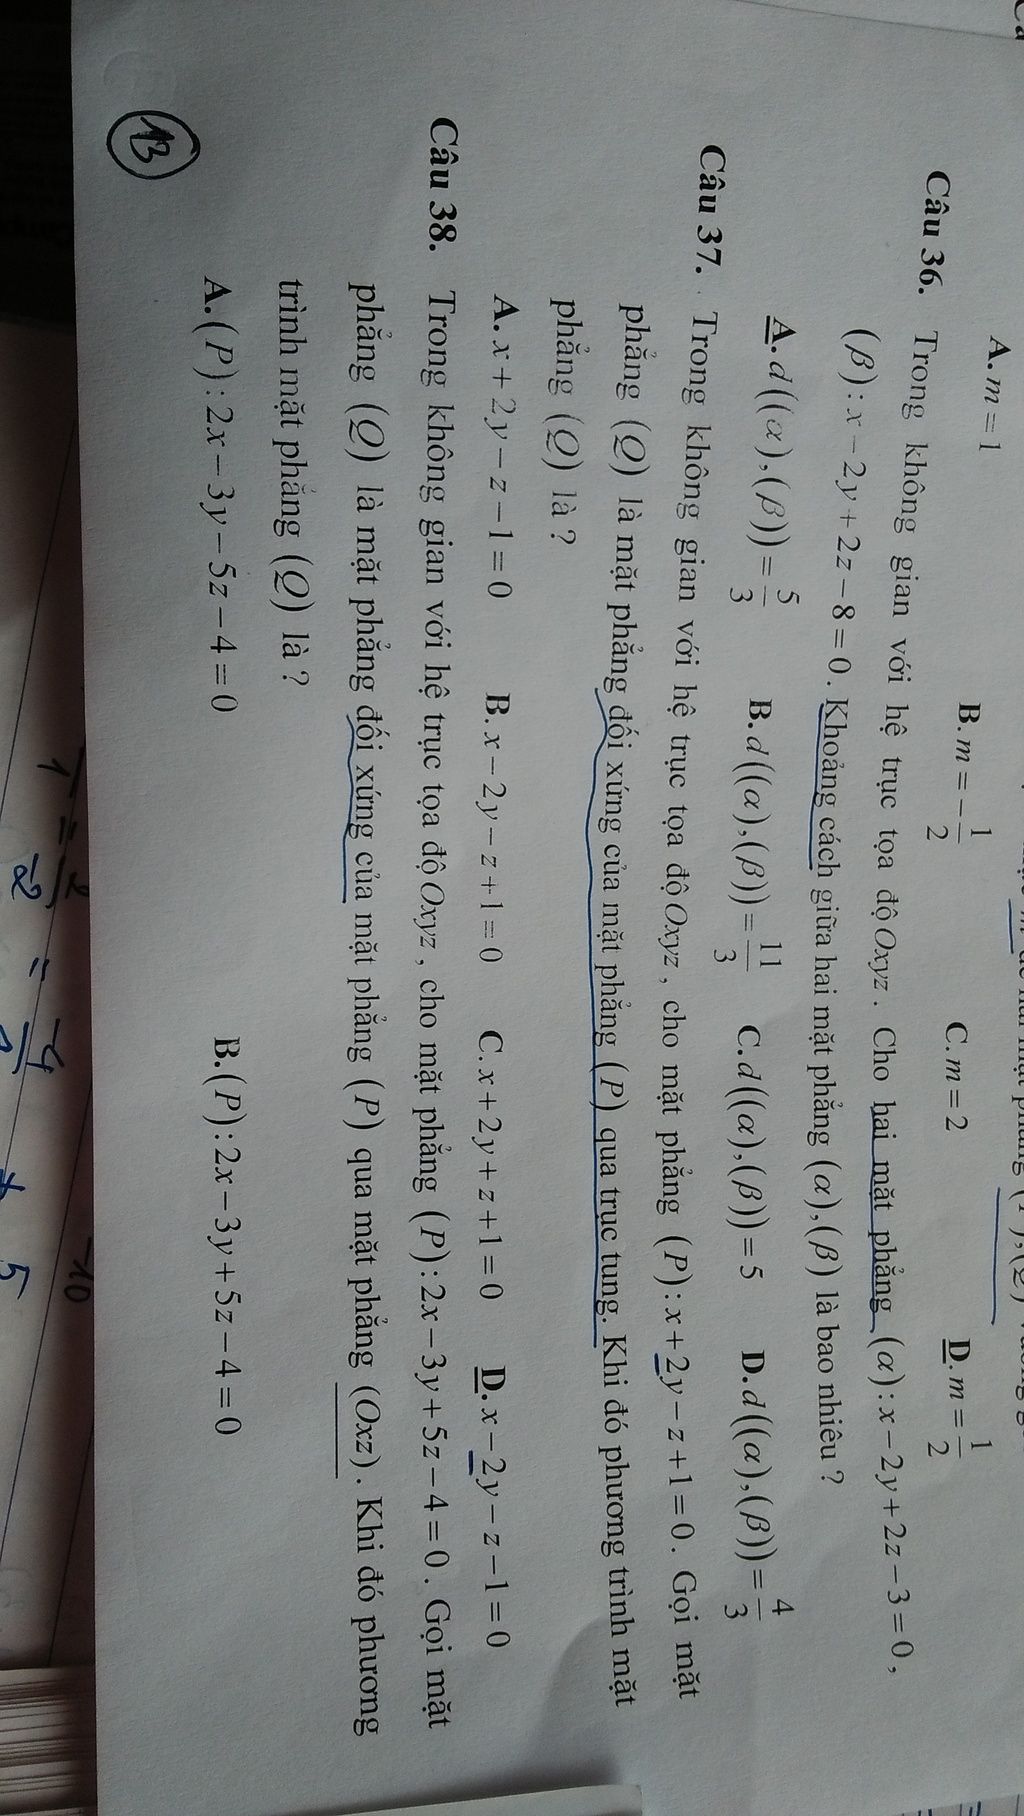 A. m = 1 B. m = -1/2 C. m = 2 D. m = 1/2
Câu 36. Trong không gian với hệ trục tọa độ Oxyz. Cho hai mặt phẳng (α): x − 2y + 2z − 3 = 0,
(β): x − 2y + 2z − 8 = 0. Khoảng cách giữa hai mặt phẳng (α),(β) là bao nhiêu ?
A. d((α),(β)) = 5/3 B. d((α),(β)) = 11/3 C. d((α),(β)) = 5 D. d((α),(β)) = 4/3
Câu 37. Trong không gian với hệ trục tọa độ Oxyz, cho mặt phẳng (P): x + 2y − z + 1 = 0. Gọi mặt
phẳng (Q) là mặt phẳng đối xứng của mặt phẳng (P) qua trục tung. Khi đó phương trình mặt
phẳng (Q) là ?
A. x + 2y − z − 1 = 0 B. x − 2y − z + 1 = 0 C. x + 2y + z + 1 = 0 D. x − 2y − z − 1 = 0
Câu 38. Trong không gian với hệ trục tọa độ Oxyz, cho mặt phẳng (P): 2x − 3y + 5z − 4 = 0. Gọi mặt
phẳng (Q) là mặt phẳng đối xứng của mặt phẳng (P) qua mặt phẳng (Oxz). Khi đó phương
trình mặt phẳng (Q) là ?
A. (P): 2x − 3y − 5z − 4 = 0 B. (P): 2x − 3y + 5z − 4 = 0
13